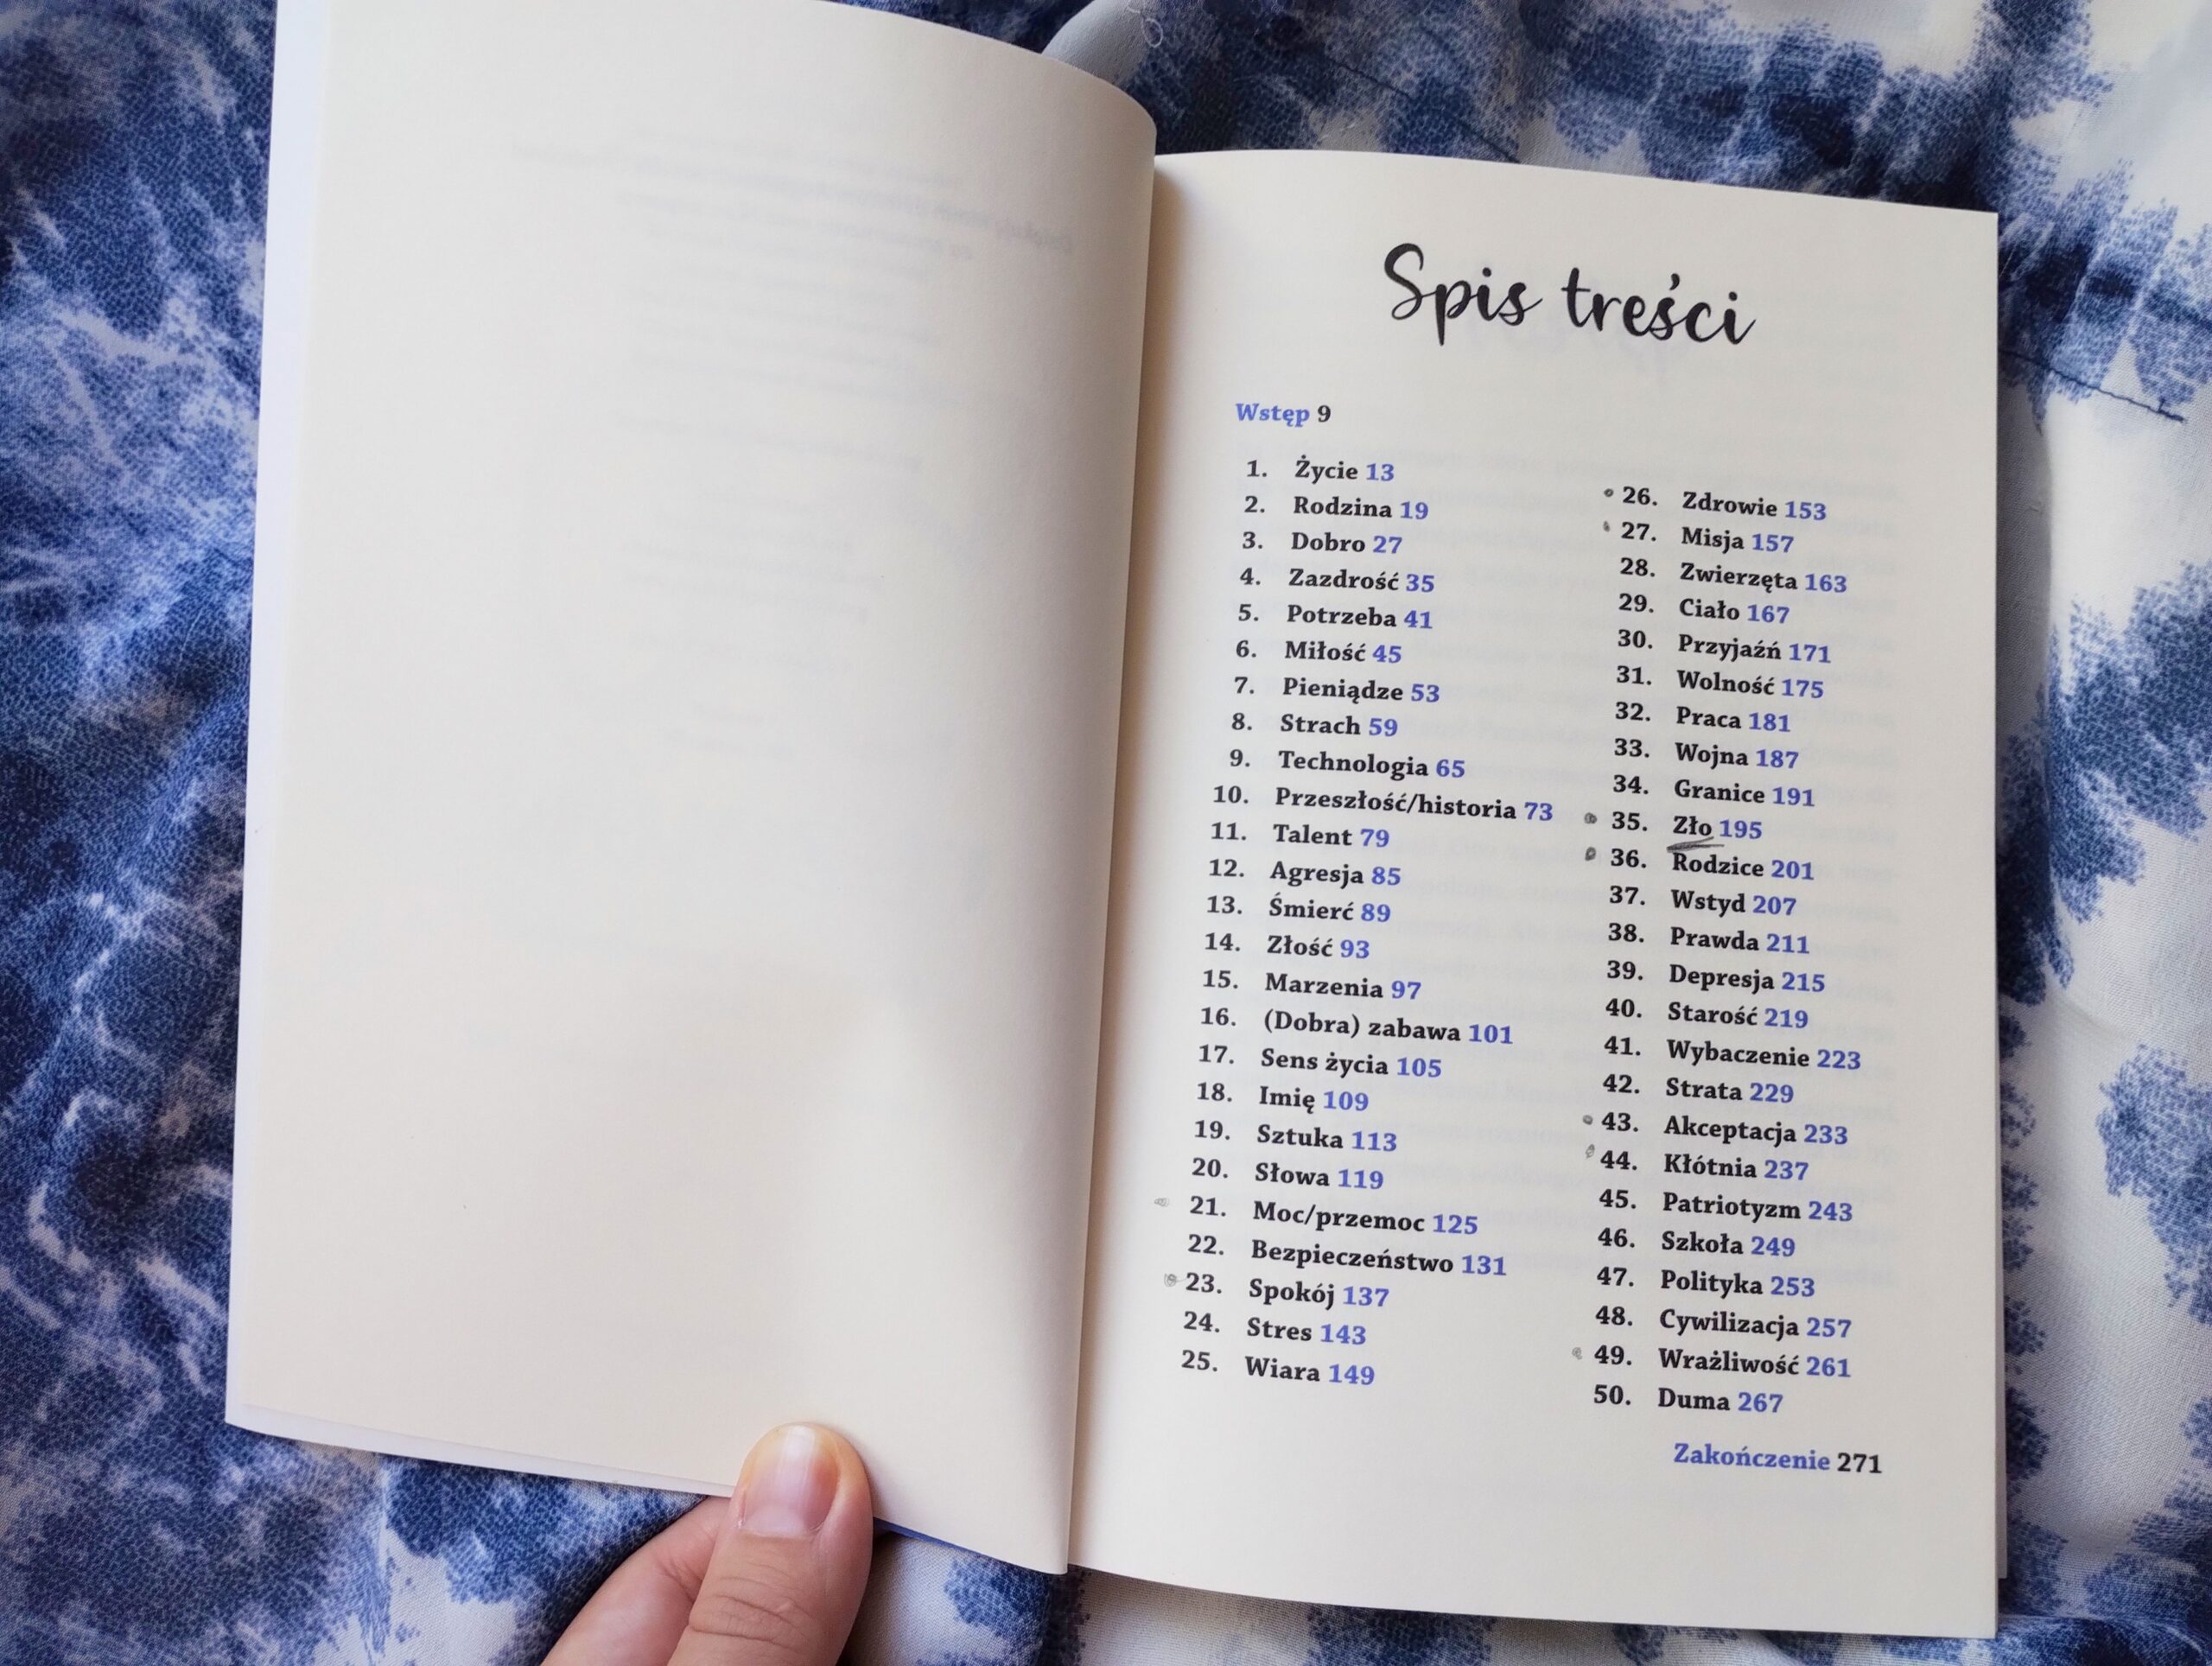 Spis treści
Wstęp 9
1. Życie 13
2. Rodzina 19
3. Dobro 27
4. Zazdrość 35
5. Potrzeba 41
6. Miłość 45
7. Pieniądze 53
8. Strach 59
9. Technologia 65
10. Przeszłość/historia 73
11. Talent 79
12. Agresja 85
13. Śmierć 89
14. Złość 93
15. Marzenia 97
16. (Dobra) zabawa 101
17. Sens życia 105
18. Imię 109
19. Sztuka 113
20. Słowa 119
21. Moc/przemoc 125
22. Bezpieczeństwo 131
23. Spokój 137
24. Stres 143
25. Wiara 149
26. Zdrowie 153
27. Misja 157
28. Zwierzęta 163
29. Ciało 167
30. Przyjaźń 171
31. Wolność 175
32. Praca 181
33. Wojna 187
34. Granice 191
35. Zło 195
36. Rodzice 201
37. Wstyd 207
38. Prawda 211
39. Depresja 215
40. Starość 219
41. Wybaczenie 223
42. Strata 229
43. Akceptacja 233
44. Kłótnia 237
45. Patriotyzm 243
46. Szkoła 249
47. Polityka 253
48. Cywilizacja 257
49. Wrażliwość 261
50. Duma 267
Zakończenie 271